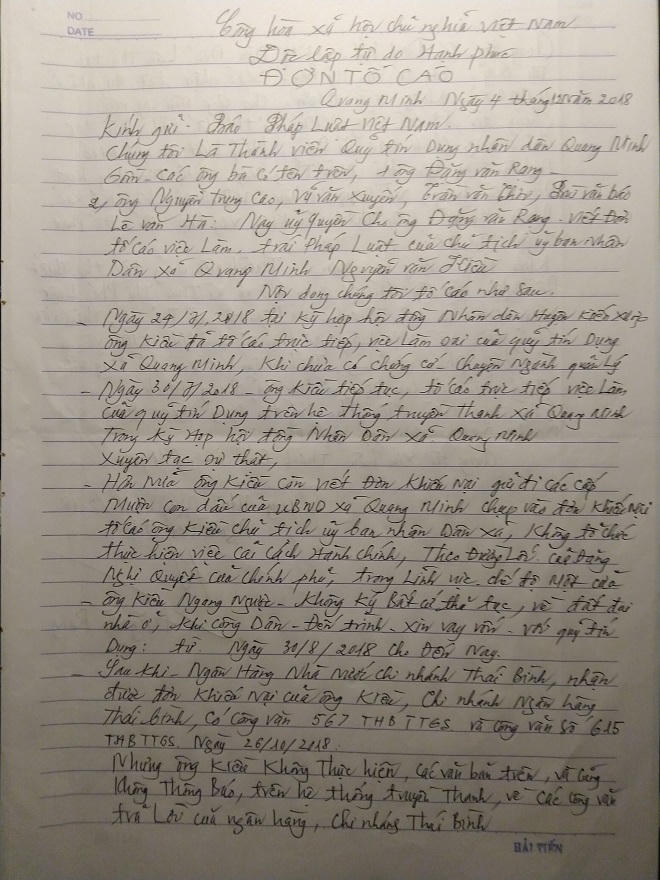 NO
DATE
Cộng hòa xã hội chủ nghĩa Việt Nam
Độc lập tự do Hạnh phúc
ĐƠN TỐ CÁO
Quang Minh Ngày 4 tháng 12 năm 2018
Kính gửi - Báo Pháp Luật Việt Nam.
Chúng tôi Là Thành viên Quỹ tín Dụng nhân dân Quang Minh
Gồm các ông bà có tên trên, 1 ông Đặng văn Rang -
2, ông Nguyễn Trung Cao, Vũ văn Xuyên, Trần văn Thìn, văn bảo
Lê văn Hà: Nay uỷ quyền Cho ông Đặng văn Rang viết Đơn
tố cáo việc Làm trái Pháp Luật của chủ tịch uỷ ban nhân
Dân xã Quang Minh Nguyễn văn Kiều
Nội dung chúng tôi tố cáo như sau.
- Ngày 24/7/2018 tại kỳ họp hội đồng Nhân dân Huyện Kiến Xương
ông Kiều đã tố cáo trực tiếp, việc làm sai của quỹ tín Dụng
xã Quang Minh, khi chưa có chứng cớ - chuyên Ngành quản Lý
- Ngày 30/7/2018 - ông Kiều tiếp tục, tố cáo trực tiếp việc Làm
Của quỹ tín Dụng trên hệ thống truyền Thanh xã Quang Minh
Trong kỳ Họp hội đồng Nhân Dân xã Quang Minh
Xuyên tạc sự thật,
- Hơn Nữa ông Kiều còn viết Đơn khiếu Nại gửi đi các cấp
Mượn con dấu của UBND xã Quang Minh chụp vào đơn khiếu Nại
tố cáo ông Kiều chủ tịch uỷ ban nhân Dân xã, Không tổ chức
thực hiện việc cải cách Hành chính, Theo Đường Lối của Đảng
Nghị Quyết của chính phủ, trong Lĩnh vực chế độ Một cửa
- ông Kiều Ngang Ngược - Không Ký Bất cứ thủ tục, về đất đai
nhà ở, khi công Dân - Đến trình - xin vay vốn - với quỹ tín
Dụng: từ Ngày 30/8/2018 cho Đến Nay.
- Sau khi - Ngân Hàng Nhà nước chi nhánh Thái Bình, nhận
được đơn khiếu Nại của ông Kiều, Chi nhánh Ngân hàng
Thái bình, có công văn 567 THB TTGS và công văn Số 615
THB TTGS Ngày 26/10/2018.
Nhưng ông Kiều Không Thực hiện, các văn bản trên, và cũng
Không Thông Báo, trên hệ thống truyền Thanh, về các công văn
trả Lời của ngân hàng, Chi nháng Thái Bình
HẢI TIẾN